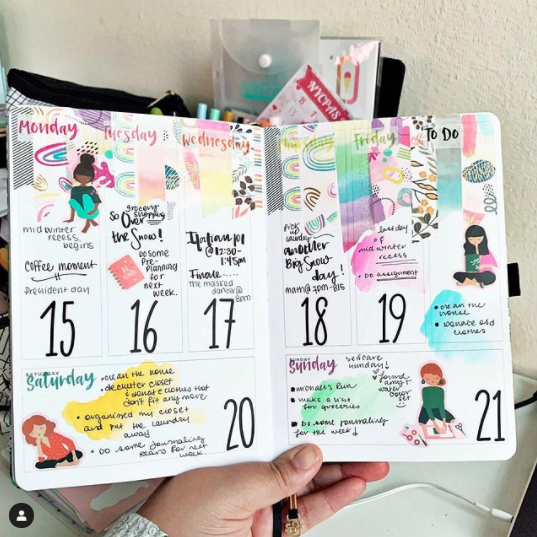 NYCPAS
Monday
Tuesday
Wednesday
Thursday
Friday
TO DO
mid winter
recess
begins
Coffee moment
President day
15
grocery
shopping
So Over
the Snow!
DO some
Pre-
planning
for
next
week.
16
@12:30-
1:45pm
Finale....
the masked
dancer@
8pm
17
pick up
laundry
another
Big Snow
day!
18
last day
of
mid winter
recess
DO assignment
19
clean the
house
donate old
clothes
SATURDAY
Saturday
clean the house
declutter closet
& donate clothes that
don't fit any more
organized my closet
and put the laundry
away
DO some journaling
for next
week
20
SUNDAY
Sunday
selfcare
sunday!
michaels Run
make a list
for groceries
DO some journaling
for the week!
found
my
water
color
21